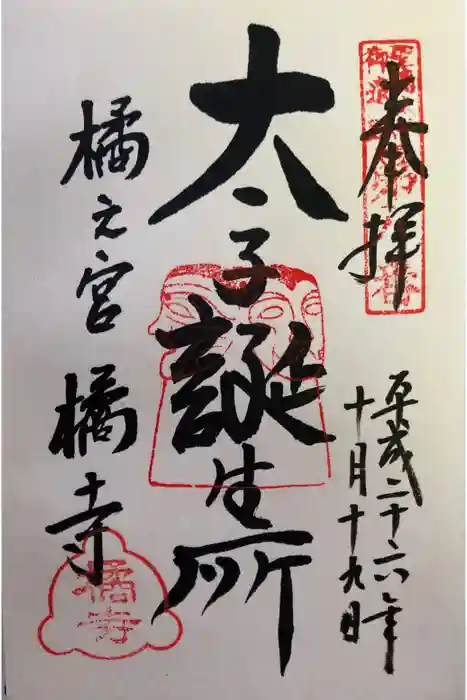 奉拝
平成二十六年
十月十九日
太子誕生所
橘之宮 橘寺
橘寺